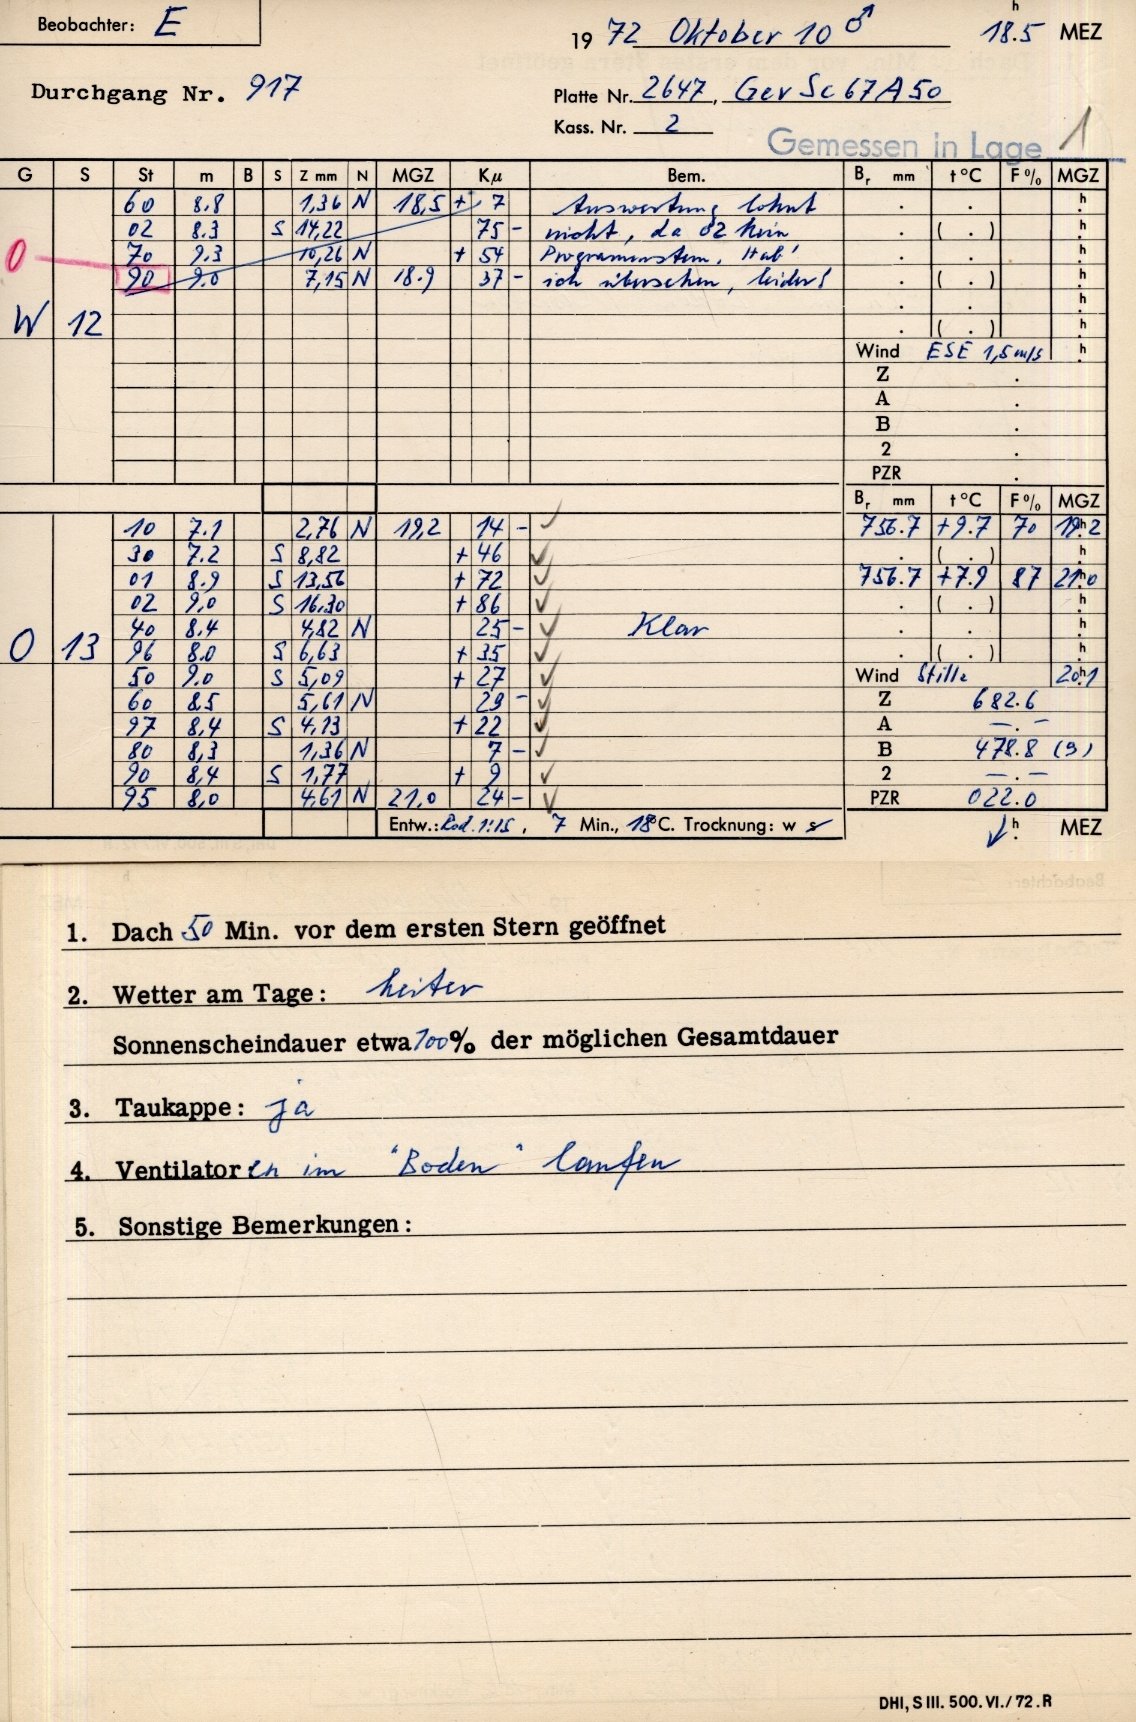 Beobachter: E
1972 Oktober 10 ♂ 18.5 h MEZ
Durchgang Nr. 917
Platte Nr. 2647, GevSc67A50
Kass. Nr. 2
Gemessen in Lage 1
G S St m B S Z mm N MGZ Kµ Bem. Br mm t °C F % MGZ
60 8.8 1,36 N 18,5 + 7 Auswertung lohnt . . h
02 8.3 S 14,22 75 - nicht, da 02 kein . ( . ) h
0 70 9.3 10,26 N + 54 Programmstern. Hab' . . h
90 9.0 7,15 N 18.9 37 - ich übersehen, leider! . ( . ) h
W 12 . . h
. ( . ) h
Wind ESE 1,5 m/s h
Z .
A .
B .
2 .
PZR .
Br mm t °C F % MGZ
10 7.1 2,76 N 19,2 14 - ✓ 756.7 +9.7 70 19h2
30 7.2 S 8,82 + 46 ✓ . ( . ) h
01 8.9 S 13,56 + 72 ✓ 756.7 +7.9 87 21h0
02 9,0 S 16,30 + 86 ✓ . ( . ) h
40 8.4 4,82 N 25 - ✓ Klar . . h
O 13 96 8.0 S 6,63 + 35 ✓ . ( . ) h
50 9.0 S 5,09 + 27 ✓ Wind Stille 20h1
60 8.5 5,61 N 29 - ✓ Z 682.6
97 8,4 S 4,13 + 22 ✓ A — . —
80 8,3 1,36 N 7 - ✓ B 478.8 (9)
90 8,4 S 1,77 + 9 ✓ 2 — . —
95 8,0 4,61 N 21,0 24 - ✓ PZR 022.0
Entw.: Rod. 1:15, 7 Min., 18°C. Trocknung: w s h MEZ
1. Dach 50 Min. vor dem ersten Stern geöffnet
2. Wetter am Tage: heiter
Sonnenscheindauer etwa 100% der möglichen Gesamtdauer
3. Taukappe: ja
4. Ventilatoren im "Boden" laufen
5. Sonstige Bemerkungen:
DHI, S III. 500. VI./72. R